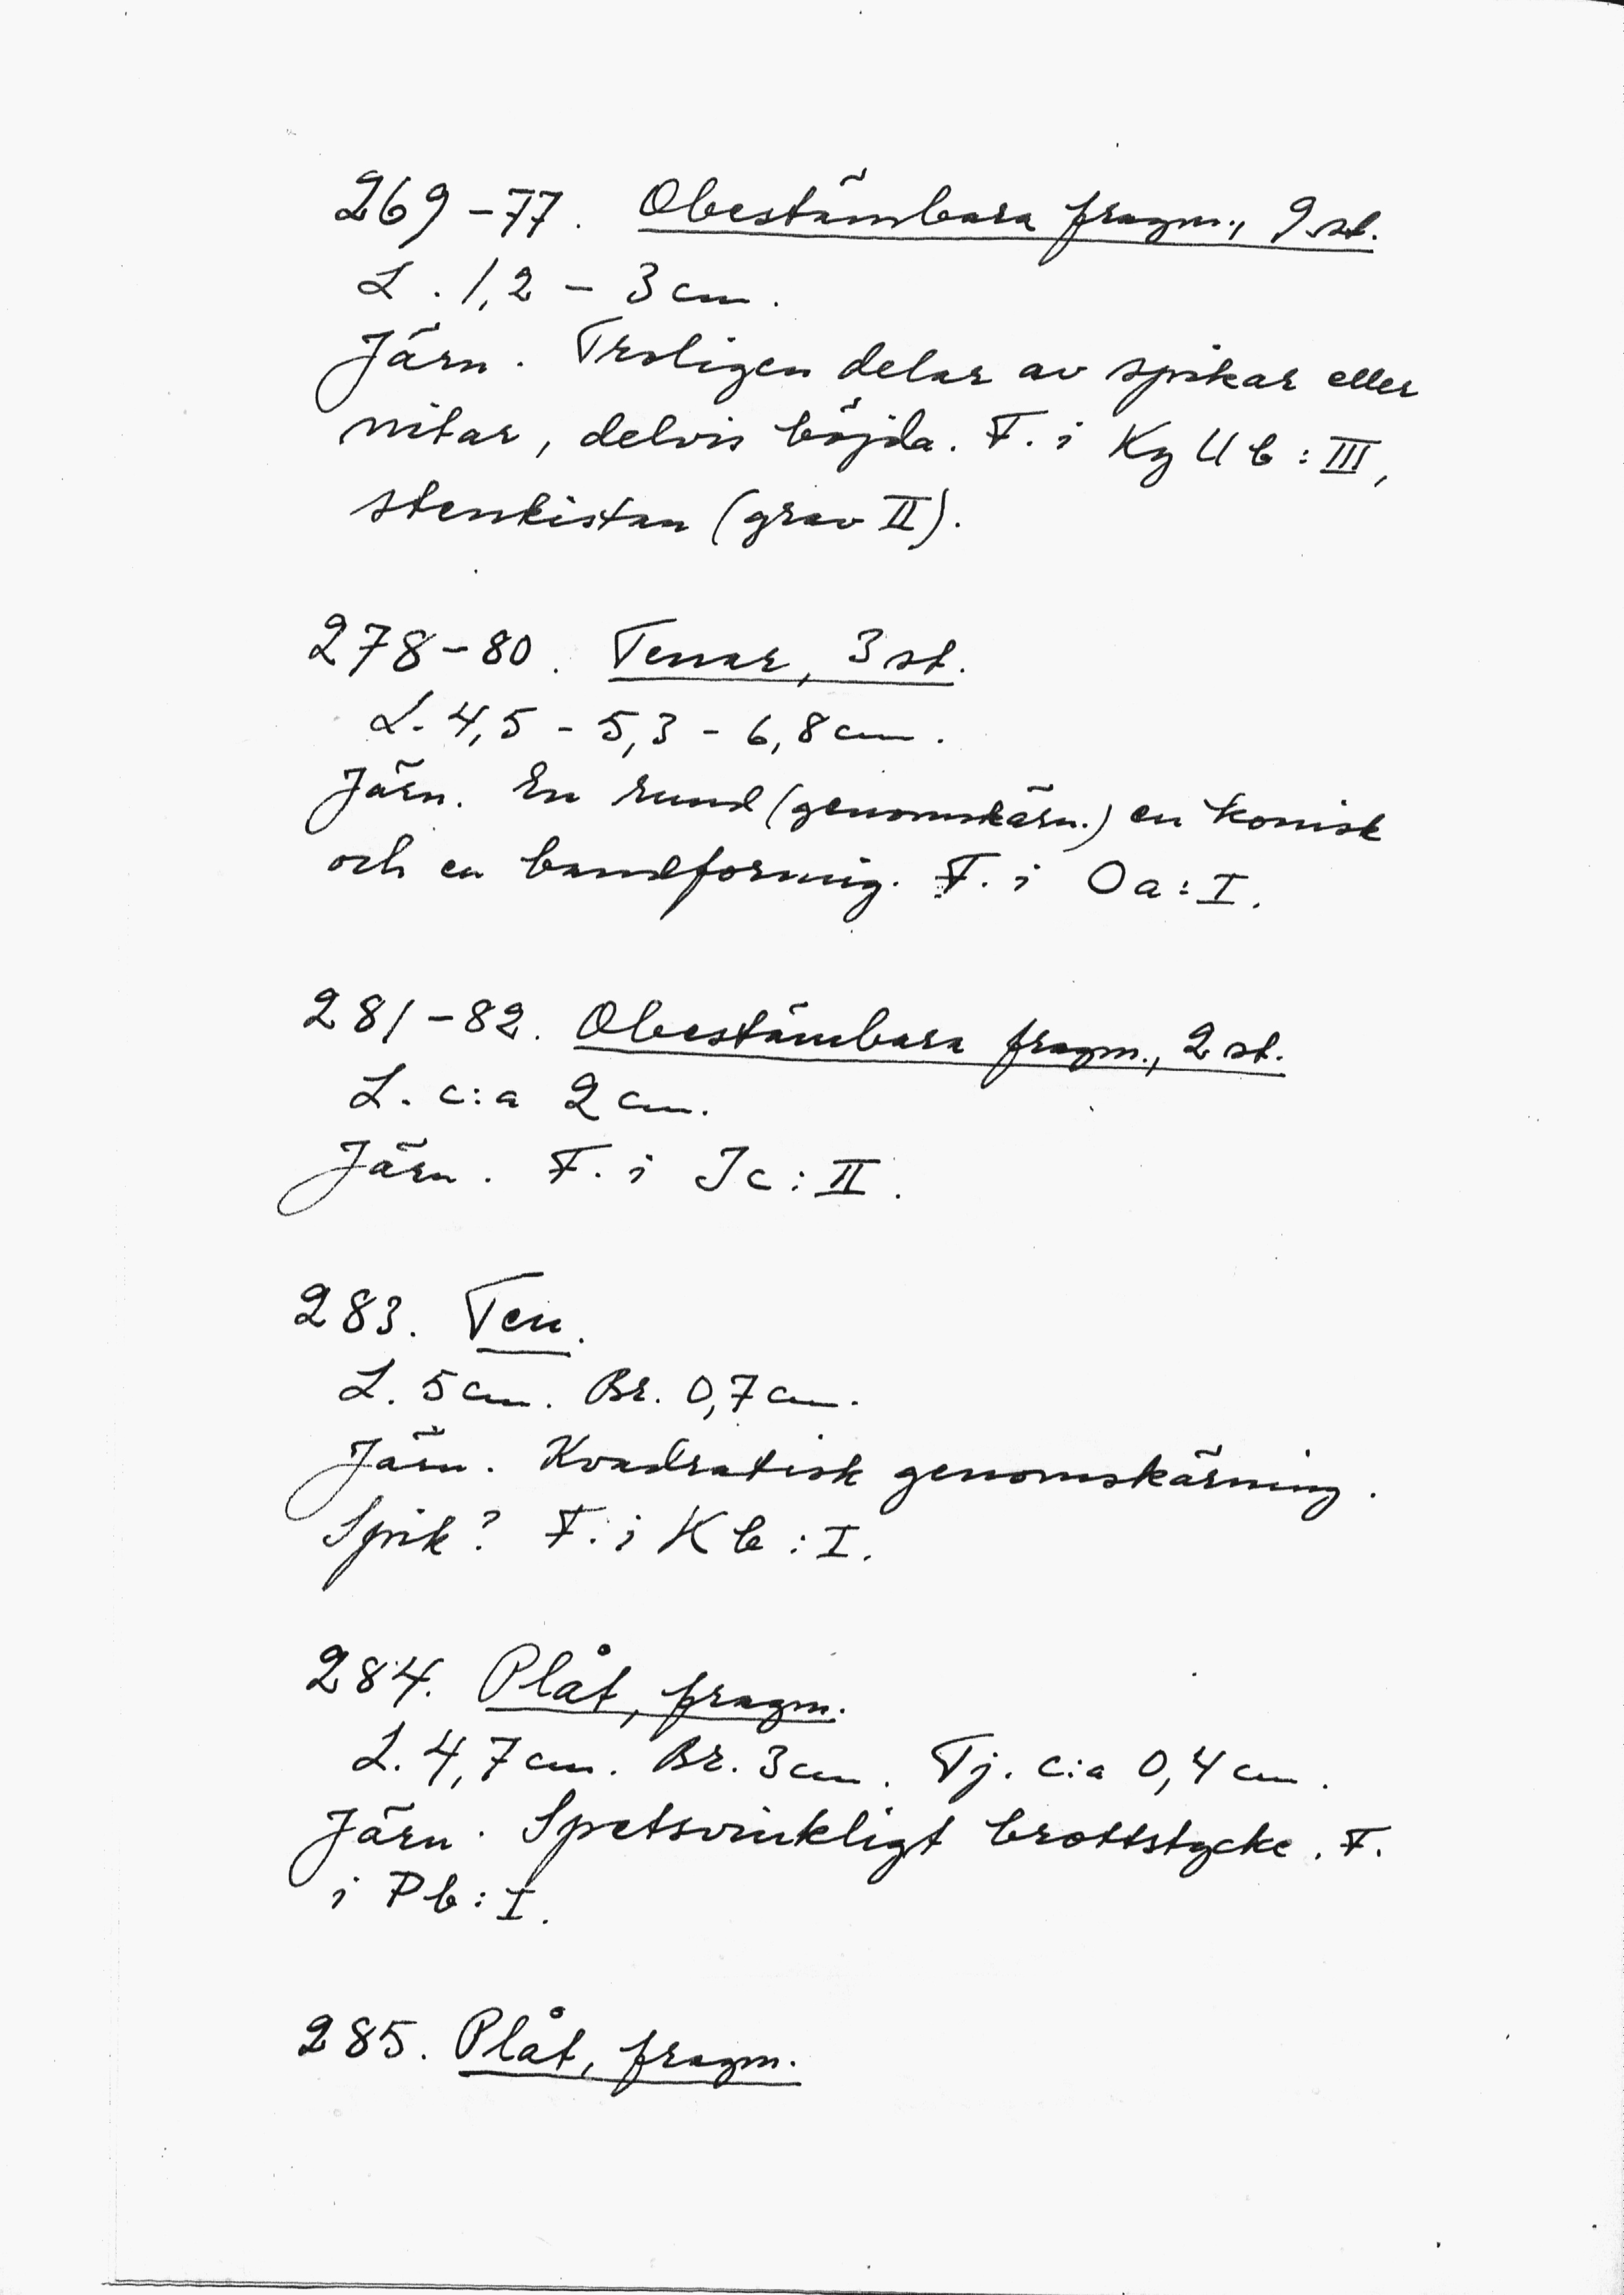 269-77. Obestämbara fragm., 9 st.
L. 1,2 - 3 cm.
Järn. Troligen delar av spikar eller
nitar, delvis böjda. F. i Kg Ub: III,
stenkistan (grav II).
278-80. Tenar, 3 st.
L. 4,5 - 5,3 - 6,8 cm.
Järn. En rund (genomskärn.) en konisk
och en bandformig. F. i Oa: I.
281-82. Obestämbara fragm., 2 st.
L. c:a 2 cm.
Järn. F. i Jc: II.
283. Ten.
L. 5 cm. Br. 0,7 cm.
Järn. Kvadratisk genomskärning.
Spik? F. i Kb: I.
284. Plåt, fragm.
L. 4,7 cm. Br. 3 cm. Tj. c:a 0,4 cm.
Järn. Spetsvinkligt brottstycke. F.
i Pb: I.
285. Plåt, fragm.